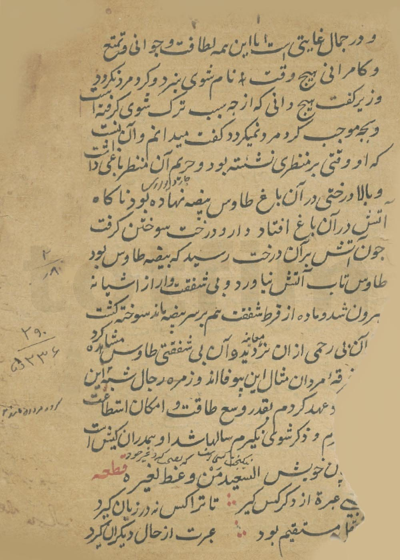 و در جمال غایتی است با این همه لطافت و جوانی و تمتع
و کامرانی هیچ وقت نام شوی نبرد و کرد مرد نکردد
وزیر کفت هیچ دانی که از چه سبب ترک شوی کرفته است
و بچه موجب کرد مرد نمیکردد کفت میدانم و آن آنست
که او وقتی بر منظری نشسته بود و حریم آن منظر باغی داشت
و بالا درختی در آن باغ طاوس بیضه نهاده بود ناکاه
آتش در آن باغ افتاد دار و درخت سوختن کرفت
چون آتش بر آن درخت رسید که بیضه طاوس بود
طاوس تاب آتش نیاورد و بی شفقت وار از اشیانه
بیرون شد و ماده از فرط شفقت هم بر سر بیضه سوخته کشت
آن بی رحمی از آن نر دید و آن بی شفقتی طاوس مشاهده کرد
مردان مثال این بیوفااند و زمره رجال شبه این
عهد کردم بقدر وسع طاقت و امکان استطاعت
و ذکر شوی نکیرم سالها شد او بدان کیش است
خویش السعید من وعظ لغیره قطعه
عبرة از دکر کس کیر تا تو را کس نرد زیان کیرد
مستقیم بود عبرت از حال دیکران کیرد
۲۹۰
۳۳۶